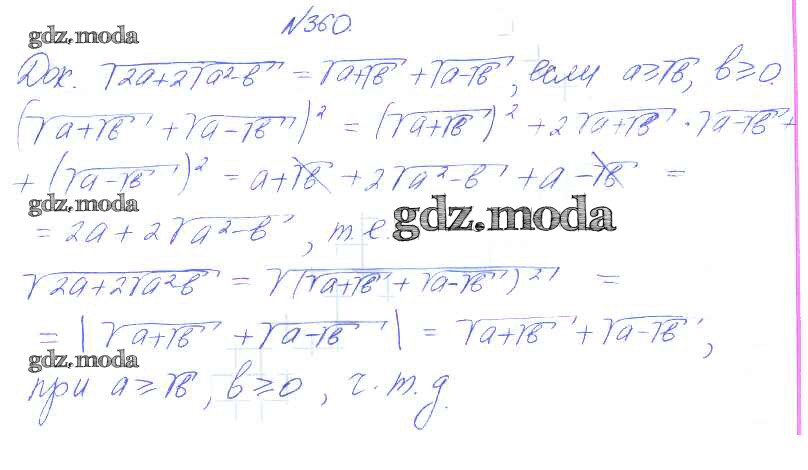 №360.
gdz.moda
Док. √(2a+2√(a²-в)) = √(a+√в) + √(a-√в), если a≥√в, в≥0.
(√(a+√в) + √(a-√в))² = (√(a+√в))² + 2√(a+√в) · √(a-√в) +
+ (√(a-√в))² = a+√в + 2√(a²-в) + a-√в =
gdz.moda
= 2a + 2√(a²-в), т.е.
gdz.moda
√(2a+2√(a²в)) = √((√(a+√в) + √(a-√в))²) =
= |√(a+√в) + √(a-√в)| = √(a+√в) + √(a-√в),
gdz.moda
при a≥√в, в≥0, ч.т.д.